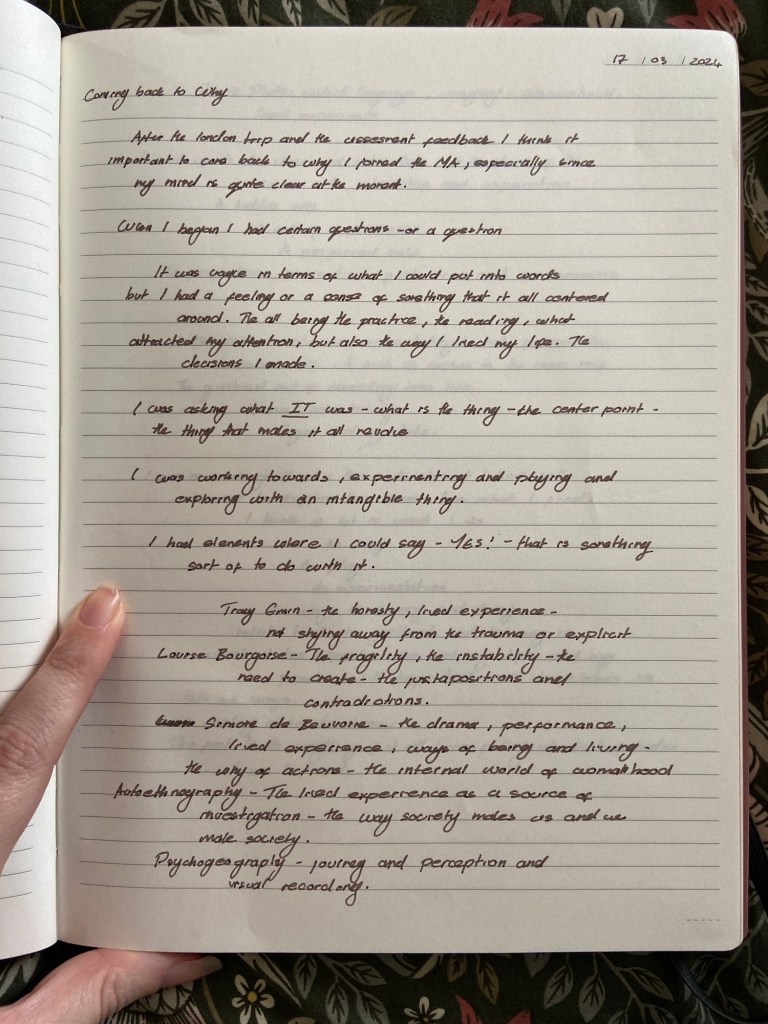 17 / 03 / 2024
Coming back to Why
After the london trip and the assesment feedback I think it
important to come back to why I joined the MA, especially since
my mind is quite clear at the moment.
When I began I had certain questions - or a question
It was vague in terms of what I could put into words
but I had a feeling or a sense of something that it all centered
around. The all being the practice, the reading, what
attracted my attention, but also the way I lived my life. The
decisions I made.
I was asking what IT was - what is the thing - the center point -
the thing that makes it all revolve
I was working towards, experimenting and playing and
exploring with an intangible thing.
I had elements where I could say - YES! - that is something
sort of to do with it.
Tracy Emin - the honesty, lived experience -
not shying away from the trauma or explicit
Lourse Bourgoise - The fragility, the instability - the
need to create - the juxtapositions and
contradictions.
Simone de Beuvoire - the drama, performance,
lived experience, ways of being and living -
the why of actions - the internal world of womanhood
Autoethnography - The lived experience as a source of
investigation - the way society makes us and we
make society.
Psychogeography - journey and perception and
visual recording.